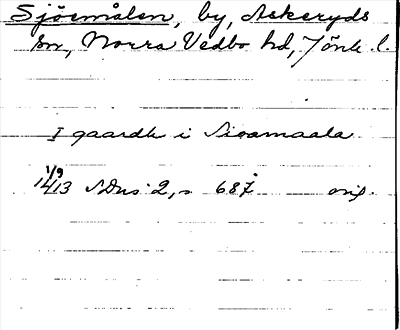 Sjöemålen, by, Askeryds
sn, Norra Vedbo hd, Jönk. l.
I gaardh i Sioamaala
1/9
1413 SDns 2, s 687 orig.